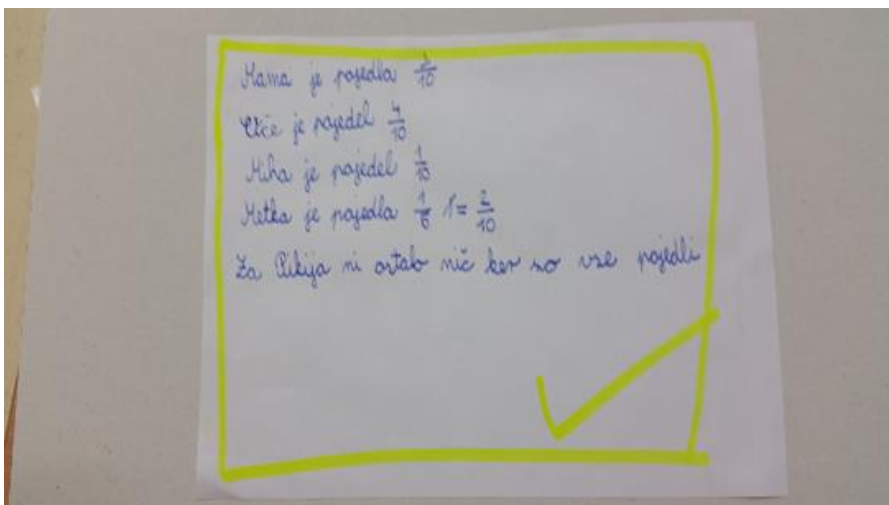 Mama je pojedla 3/10
Oče je pojedel 4/10
Miha je pojedel 1/10
Metka je pojedla 1/5 = 2/10
Za Pikija ni ostalo nič ker so vse pojedli